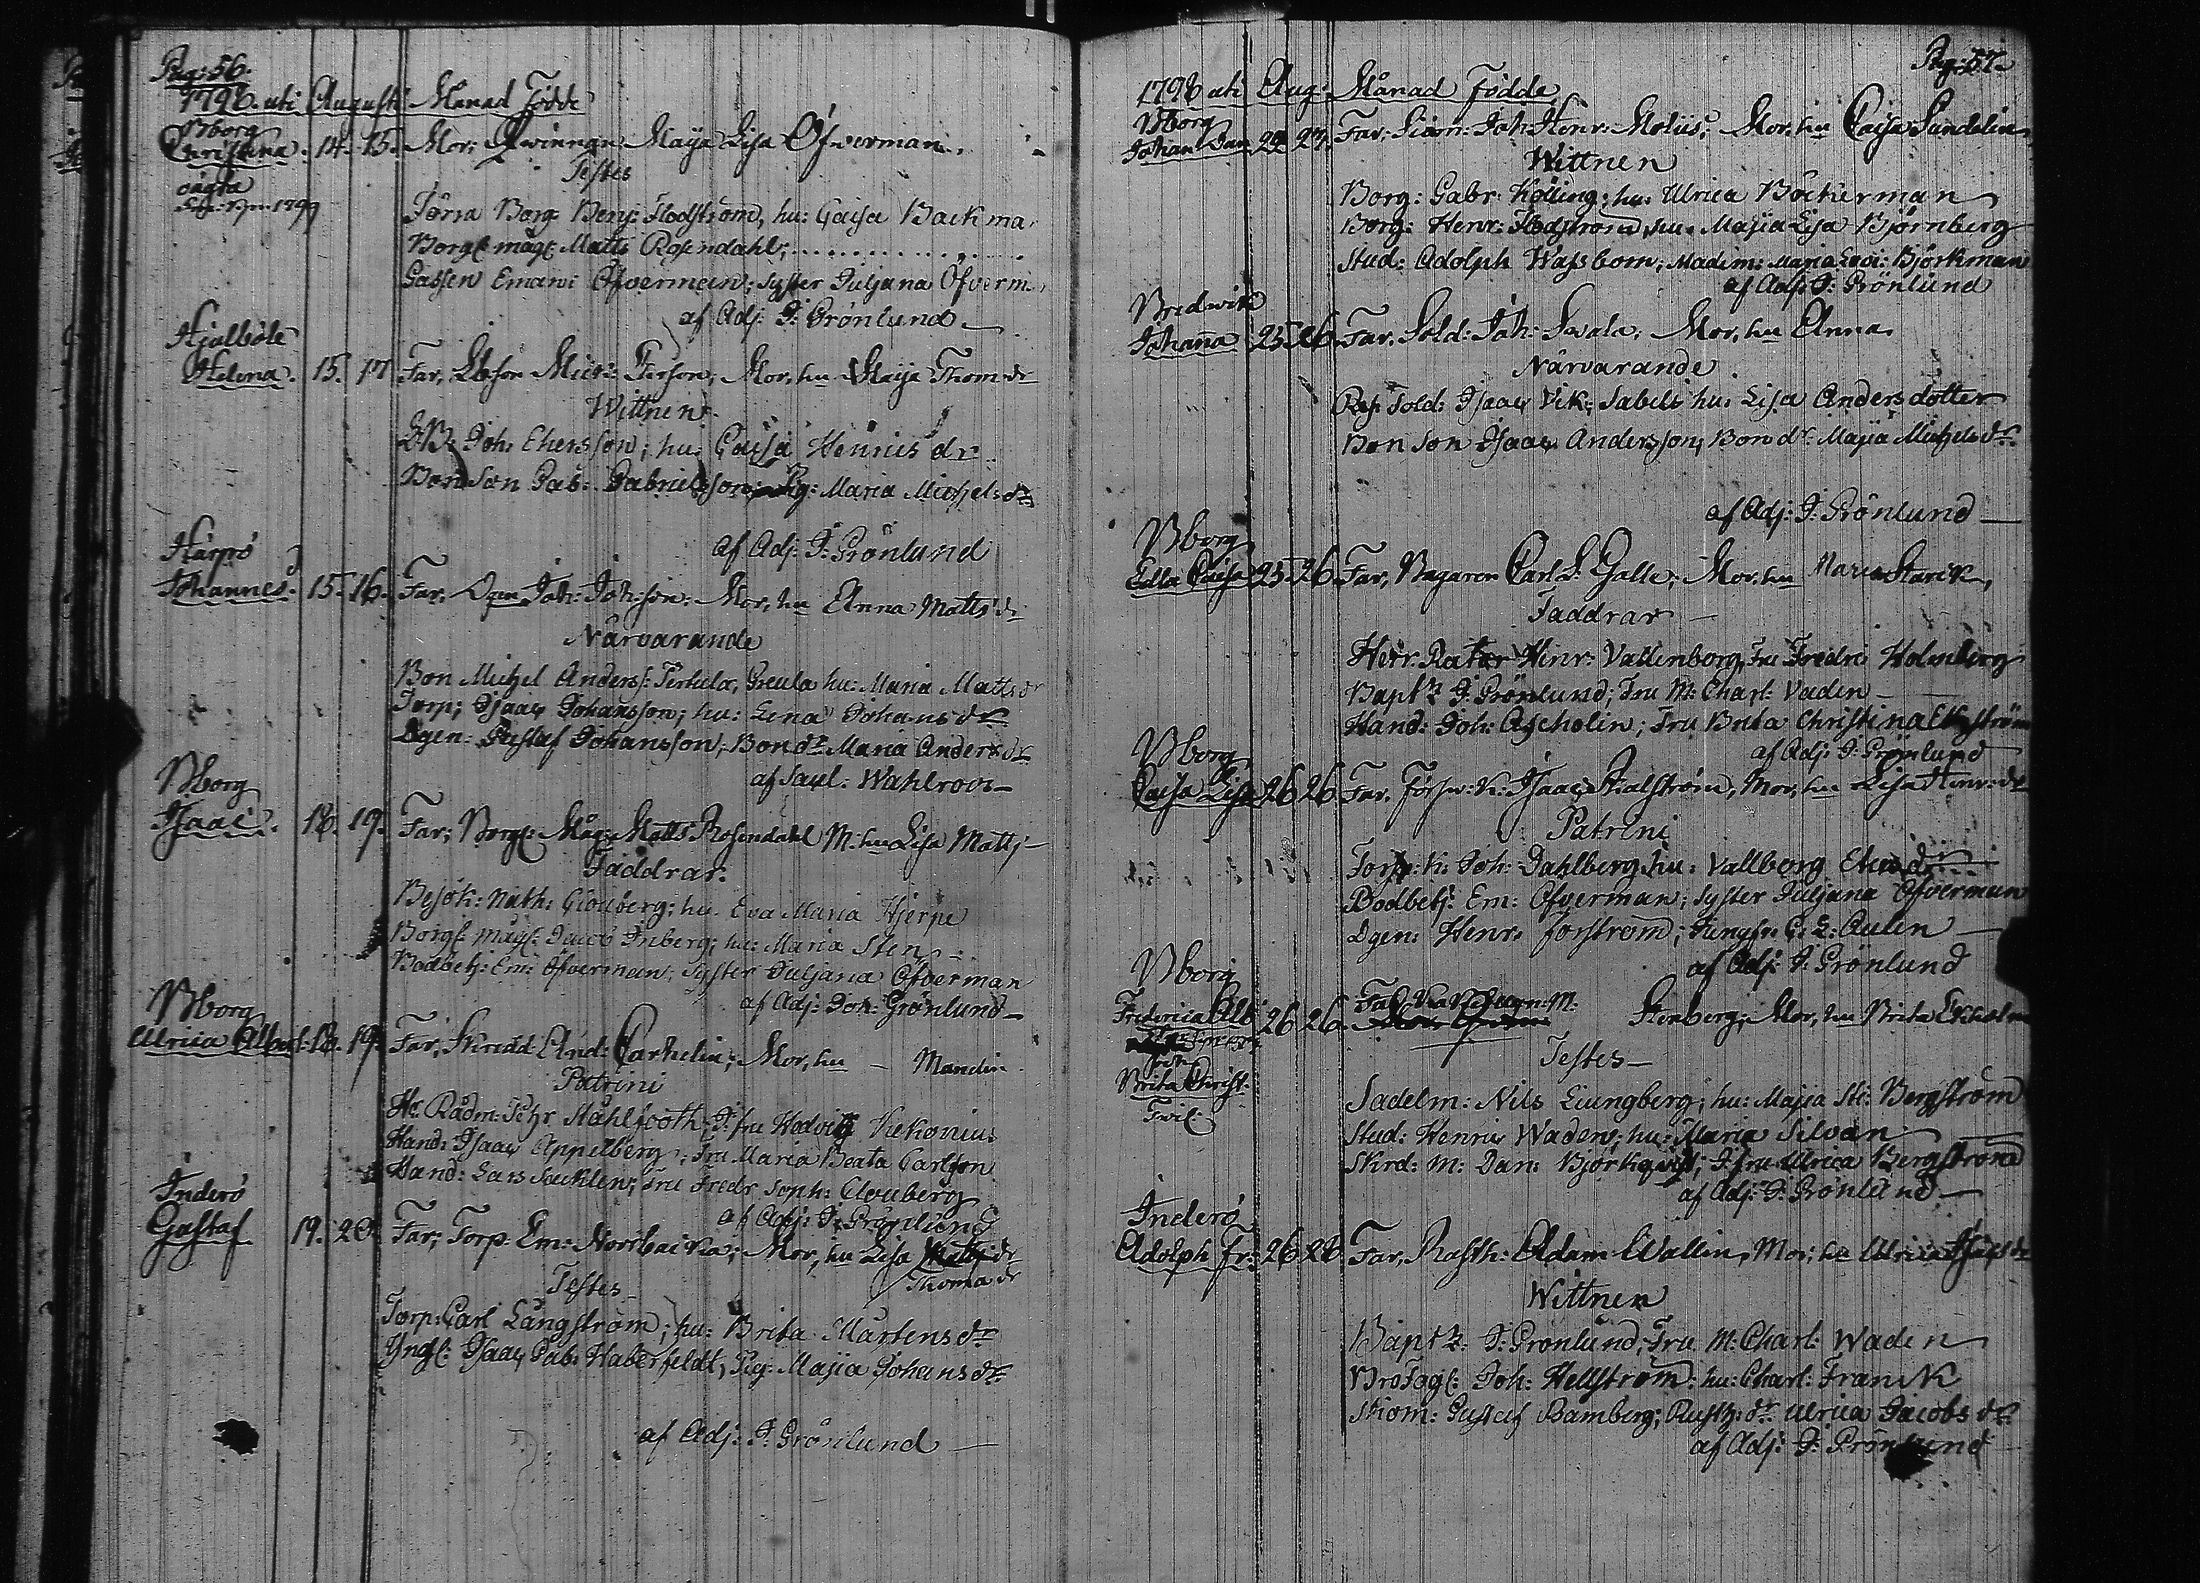 Pag: 56.
1798. uti Augusti Månad Födde
Nborg
Christina. 14. 15. Mor, Qwinnan Maija Lisa Öfverman.
oägta
Testes
Förra Borg. Benj: Flodström, hu: Caisa Backma
Borgl mågl Matts Rosendahl;
Gassen Emani Öfverman; syster Juljana Öfverm
af Adj: J: Grönlund
Hjulböle
Helena. 15. 17 Far, Mich: Person; Mor, hu Maija Thomdr
Wittnen
Joh: Ehersson; hu: Caisa Henricsdr
Bondson Gab: Gabrielsson; Pig: Maria Michelsdr
af Adj: J: Grönlund
Harjrö
Johannes. 15. 16. Far, Joh: Johsson: Mor, hu Anna Mattsdr
Närvarande
Bon Michel Anderss: Pertula, Greula hu: Maria Mattsdr
Torp; Isaac Johansson; hu: Lena Johansdr
Dgen: Gustaf Johansson; Bondr Maria Andersdr
af Sacl: Wahlroos
Nborg
Isaac. 18. 19. Far; Borgl: Mågl: Matts Rosendahl M. hu Lisa Matts
Faddrar.
Besök: Nath: Clouberg; hu. Eva Maria Hjerpe
Borgl: mågl: Jacob Inberg; hu: Maria Sten
Bodbetj: Em: Öfverman; syster Juljana Öfverman
af Adj: Joh: Grönlund
Nborg
Ulrica Albert. 18. 19. Far, Skredd. And: Carhelin; Mor, hu — Mandin
Patrini
Hr Rådm: Pehr Stahlfooth; J:fru Hedvig Kekonius
Hand: Isaac Appelberg; Fru Maria Beata Carlson
Hand: Lars Sacklen; Fru Fredr. Soph: Clouberg
af Adj: J: Grönlund
Inderö
Gustaf 19. 20. Far; Torp: Em: Norrbacka; Mor, hu Lisa Mattsdr
Thomadr
Testes
Torp: Carl Långström; hu: Brita Mårtensdr
Yngl: Isaac Gab: Haberfeldt, Pig: Majia Johansdr
af Adj: J: Grönlund
Pag: 57.
1798 uti Aug: Månad Födde
Nborg
Johan Dan 27. Far; Joh: Henr: Moliis; Mor, hu Caisa Sandelin
Wittnen
Borg: Gabr: Kölling; hu: Ulrica Böckerman
Borg: Henr: Flodström, hu: Majia Lisa Björnberg
Stud: Adolph Wassbom; Madim: Maria Lovi: Björkman
af Adj: J: Grönlund
Bredwik
Johanna 25 26. Far, Sold: Joh: Swala; Mor, hu Anna
Närvarande
Ref: Sold: Isaac Vik: Sabels hu: Lisa Andersdotter
Bonson Isaac Andersson; Bondr: Majia Michelsdr
af Adj: J: Grönlund
Nborg
Edla Caisa 25 26 Far, Bagaren Carl G: Galle; Mor, hu Maria Starck,
Faddrar
Herr Ratar Hinr: Vallenborg; Fru Fredr: Holmberg
Baptz J: Grönlund; Fru M: Charl: Vaden
Hand: Joh: Ascholin; Fru Brita Christina Ekström
af Adj: J: Grönlund
Nborg
Caisa Lisa 26 26 Far, Förspr: K: Isaac Stalström, Mor, hu Lisa Henr:dr
Patrini
Forspr: K: Joh: Dahlberg; hu: Vallborg
Bodbetj: Em: Öfverman; syster Juljana Öfverman
Dgen: Henr: Forström; Jungfr: C: L: Aulen
af Adj: J: Grönlund
Nborg
Fredrica Alb: 26 26. Far, M: Stenberg; Mor, hu Brita Ekholm
och
Brita Christ.
Tvil:
Testes
Sadelm: Nils Liungberg; hu: Majia Sti: Bergström
Stud: Henric Waden; hu: Maria Silvan
Skrd: M: Dan: Björkqvist; J:fru Ulrica Bergström
af Adj: J: Grönlund
Inderö
Adolph Fr: 26 28 Far, Rusth: Adam Wallin, Mor, hu Ulrica
Wittnen
Baptz: J: Grönlund; Fru M: Charl: Waden
Brofogl: Joh: Hellström: hu: Charl: Franck
Skom: Gustaf Bamberg; Rusth: dr Ulrica Jacobsdr
af Adj: J: Grönlund